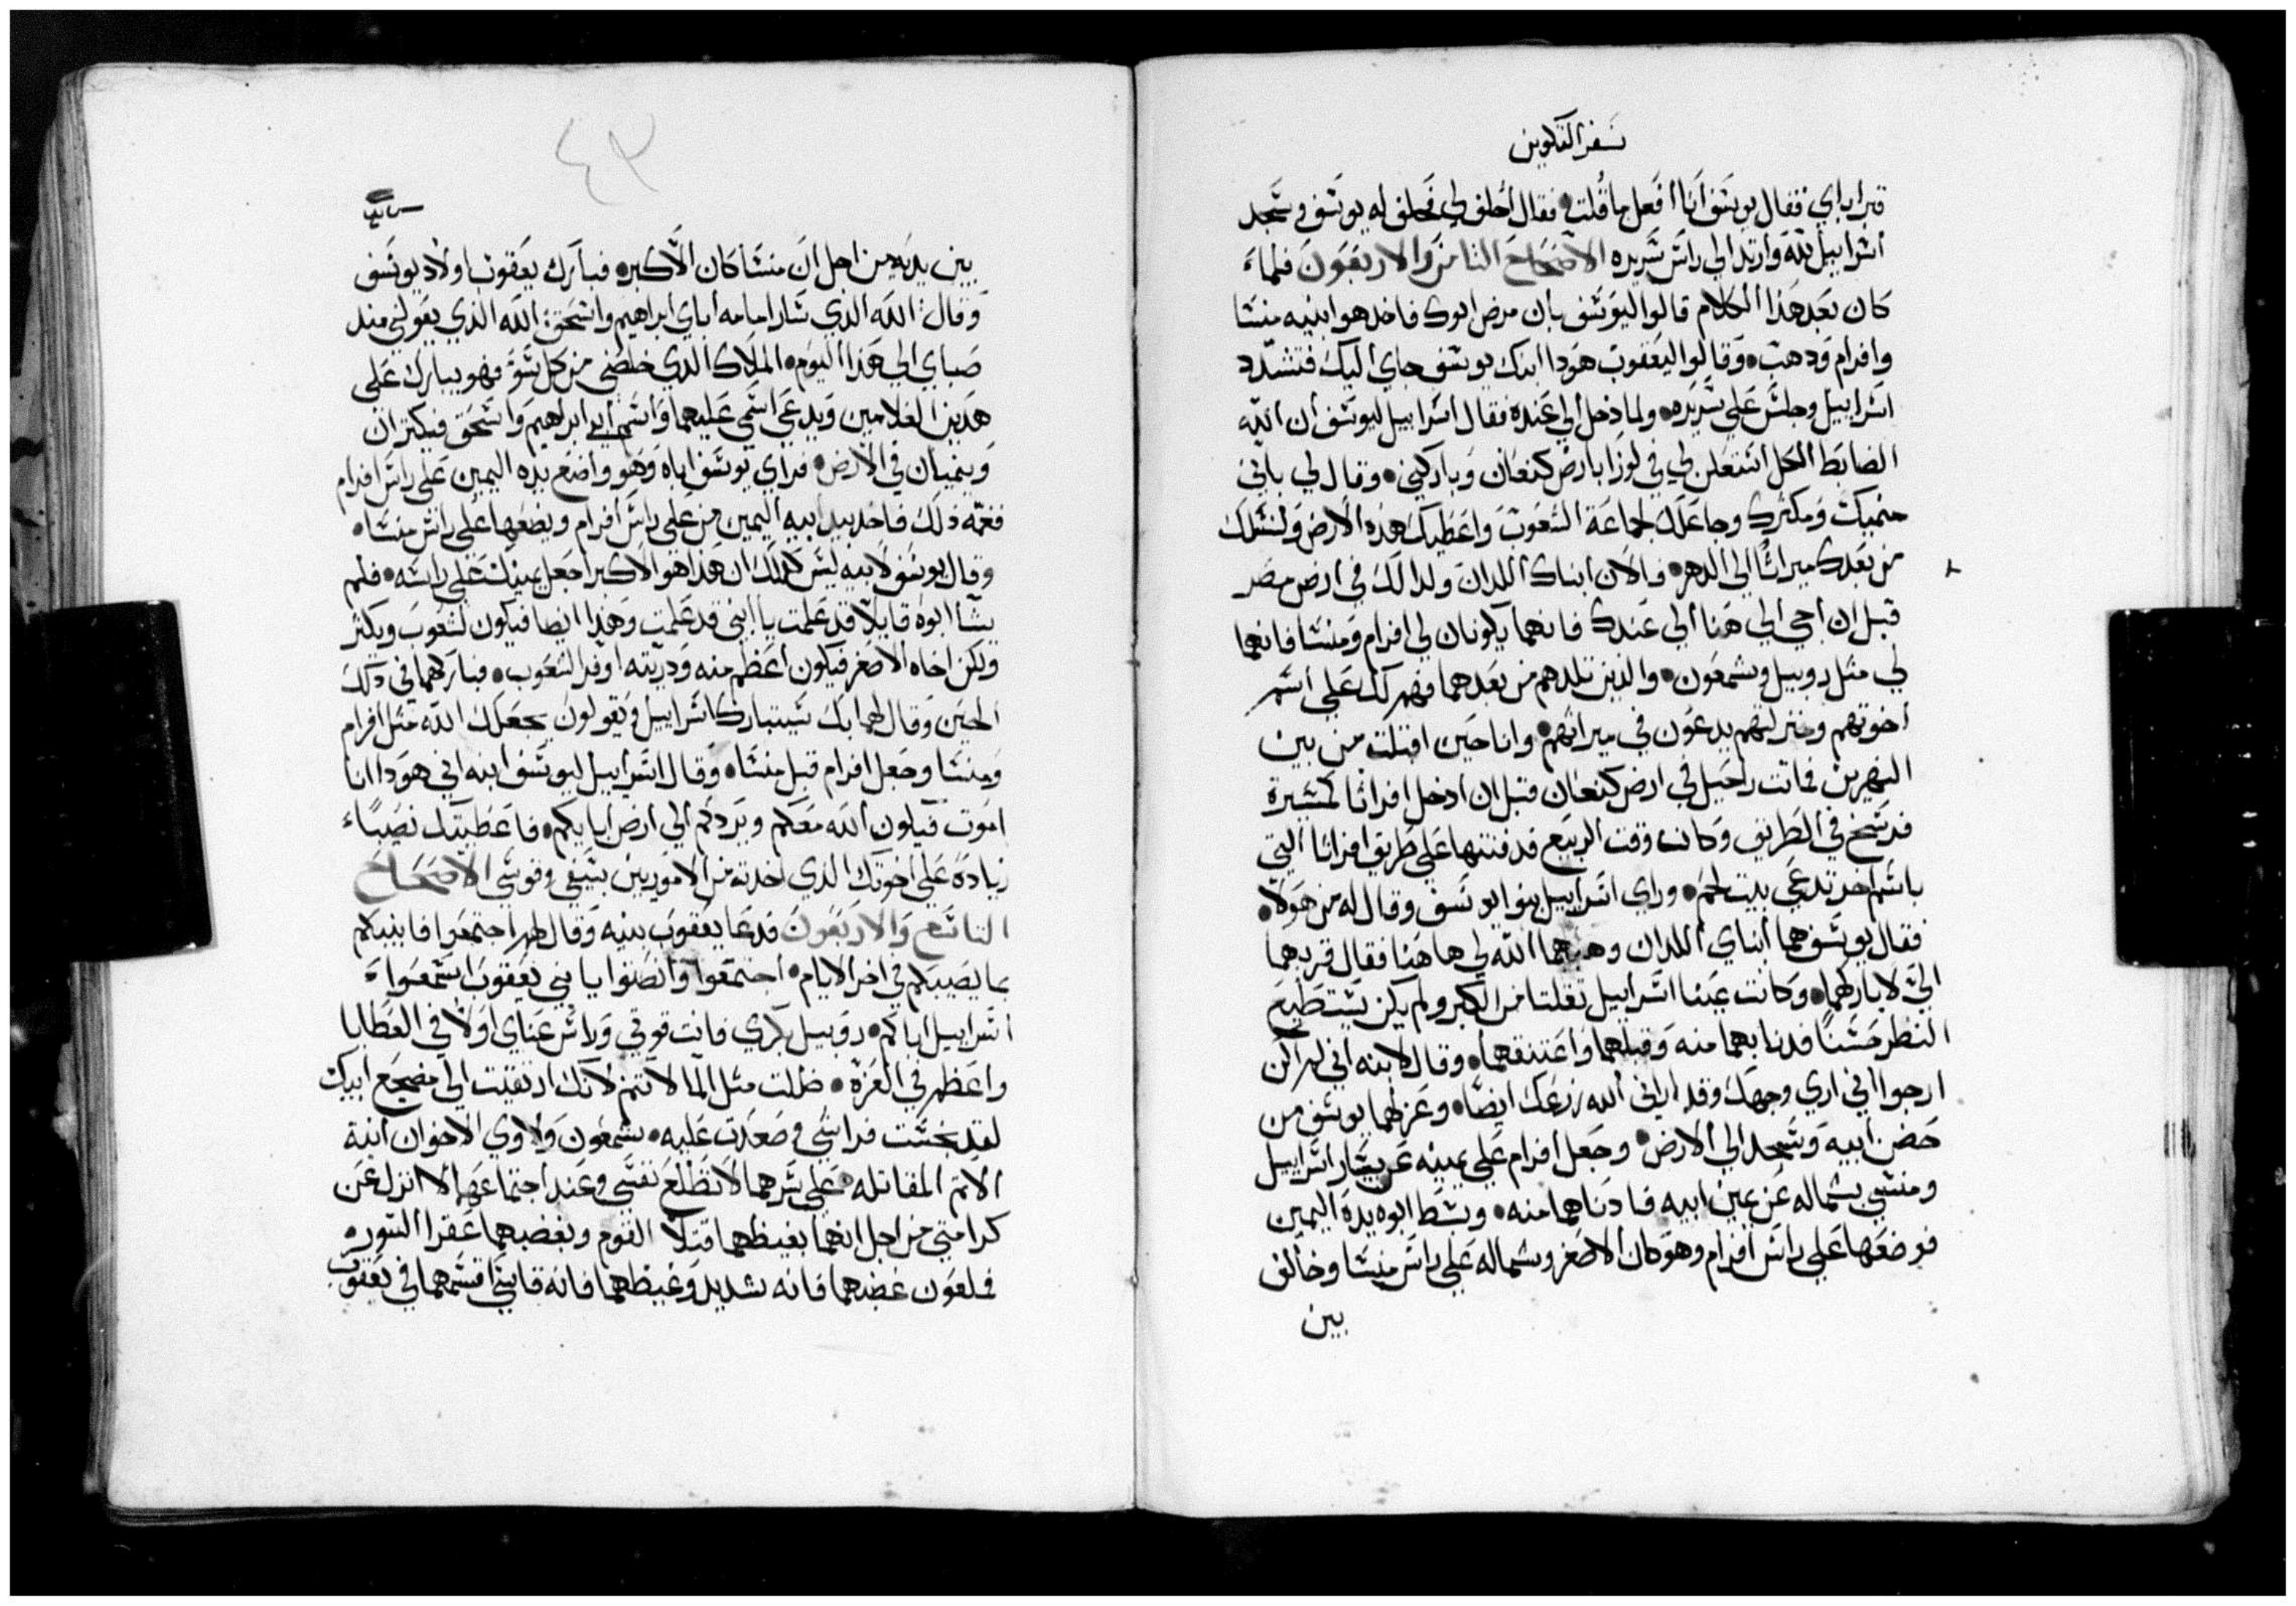 سفر التكوين
قبر اباي فقال يوسف انا افعل ما قلت فقال احلف لي فحلف له يوسف وسجد
اسراييل لله وارتد الي راس سريره الاصحاح الثامن والاربعون فلما
كان بعد هذا الكلام قالوا ليوسف بان مرض ابوك فاخد هو ابنيه منشا
وافرام ودهب وقالوا ليعقوب هودا ابنك يوسف جاي اليك فتشدد
اسراييل وجلس علي سريره ولما دخل الي عنده فقال اسراييل ليوسف ان الله
الضابط الكل استعلن لي في لوزا بارض كنعان وباركني وقال لي باني
منميك ومكثرك وجاعلك لجماعة الشعوب واعطيك هذه الارض ولنسلك
من بعدك ميراثا الي الدهر والان ابناك اللدان ولدا لك في ارض مصر
قبل ان اجي الي هنا الي عندك فانهما يكونان لي افرام ومنشا فانهما
لي مثل روبيل وشمعون والذين تلدهم من بعدهما فهم لك علي اسم
اخوتهم ومنزلتهم يدعون في ميراثهم وانا حين اقبلت من بين
النهرين فماتت راحيل في ارض كنعان قبل ان ادخل افراتا لمسيرة
فرسخ في الطريق وكان وقت الربيع فدفنتها علي طريق افراتا التي
باسم اخر تدعي بيت لحم وراي اسراييل بنوا يوسف وقال له من هولا
فقال يوسف هما ابناي اللدان وهبهما الله لي هاهنا فقال قربهما
الي لاباركهما وكانت عينا اسراييل ثقلتا من الكبر ولم يكن يستطيع
النظر حسنا فدنا بهما منه وقبلهما واعتنقهما وقال لابنه اني لم اكن
ارجوا اني اري وجهك وقد اراني الله زرعك ايضا وعزلهما يوسف من
حضن ابيه وسجد الي الارض وجعل افرام علي يمينه عن يسار اسراييل
ومنشي بشماله عن يمين ابيه فادناهما منه وبسط ابوه يده اليمين
فوضعها علي راس افرام وهو كان الاصغر وشماله علي راس منشا وخالف
بين
٤٣
بين يديه من اجل ان منشا كان الاكبر فبارك يعقوب اولاد يوسف
وقال الله الذي سار امامه اباي ابراهيم واسحق الله الذي يعولني مند
صباي الي هذا اليوم الملاك الدي خلصني من كل سو فهو يبارك علي
هدين الغلامين ويدعي اسمي عليهما واسم ابي ابراهيم واسحق فيكثران
وينميان في الارض فراي يوسف اباه وهو واضع يده اليمين علي راس افرام
فغمه ذلك فاخد بيد ابيه اليمين من علي راس افرام ويضعها علي راس منشا
وقال يوسف لابيه ليس كدلك ان هذا هو الاكبر اجعل يمينك علي راسه فلم
يشا ابوه قايلا قد علمت يا ابني قد علمت وهدا ايضا فيكون لشعوب ويكثر
ولكن اخاه الاصغر فيكون اعظم منه ودريته اوفر الشعوب فباركهما في دلك
الحين وقال لهما بك سيتبارك اسراييل ويقولون يجعلك الله مثل افرام
ومنشا وجعل افرام قبل منشا وقال اسراييل ليوسف ابنه اني هودا انا
اموت فيكون الله معكم ويردكم الي ارض ابايكم فاعطيتك نصيبا
زيادة علي اخوتك الدي اخدته من الاموريين بسيفي وقوسي الاصحاح
التاسع والاربعون فدعا يعقوب بنيه وقال لهم اجتمعوا فانبيكم
بما يصيبكم في اخر الايام اجتمعوا وانصتوا يا بني يعقوب اسمعوا
اسراييل اباكم روبيل بكري فانت قوتي وراس عناي اولا في العطايا
واعظم في العزة ظللت مثل الما لا تتم لانك ارتقيت الي مضجع ابيك
لقد نجست فراشي وصعدت عليه شمعون ولاوي الاخوان انية
الاتم المقاتله علي سرهما لا تطلع نفسي وعند اجتماعهما لا انزل عن
كرامتي من اجل انهما بغيظهما قتلا القوم وبغضبهما عقرا السور
فملعون غضبهما فانه شديد وغيظهما فانه قاسي اقسمهما في يعقوب